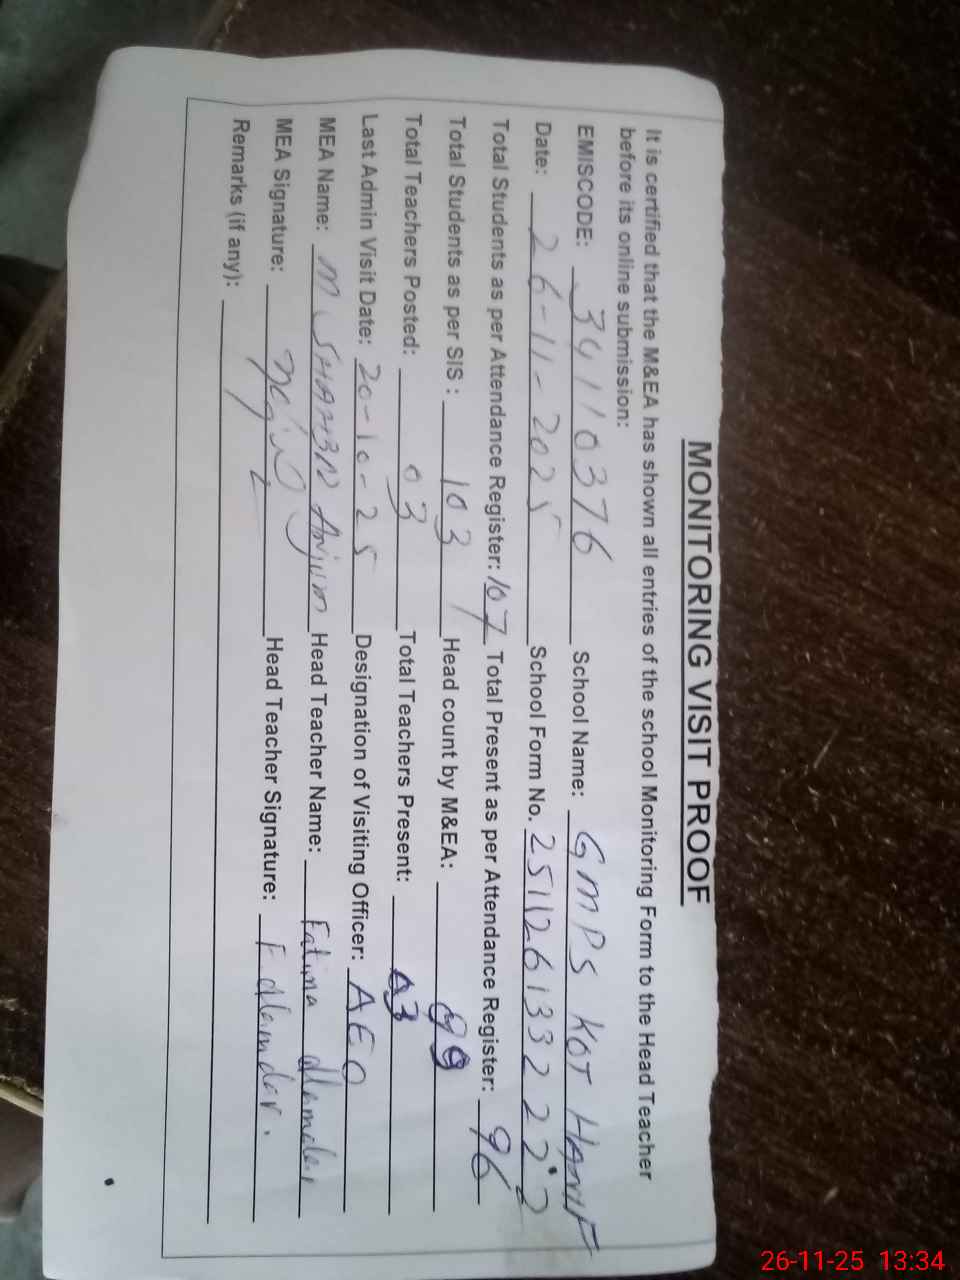 MONITORING VISIT PROOF
It is certified that the M&EA has shown all entries of the school Monitoring Form to the Head Teacher
before its online submission:
EMISCODE: 34110376 School Name: GMPS KOT HANIF
Date: 26-11-2025 School Form No. 25112613322222
Total Students as per Attendance Register: 107 Total Present as per Attendance Register: 96
Total Students as per SIS : 103 Head count by M&EA:
Total Teachers Posted: 03 Total Teachers Present: 03
Last Admin Visit Date: 20-10-25 Designation of Visiting Officer: AEO
MEA Name: M Anjum Head Teacher Name: Fatima
MEA Signature: Head Teacher Signature: F
Remarks (if any):
26-11-25 13:34